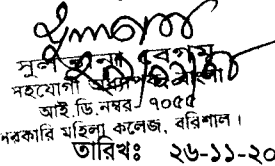 সুলতানা বেগম
সহযোগী অধ্যাপক বাংলা
আই.ডি.নম্বর- ৭০৫৫
সরকারি মহিলা কলেজ, বরিশাল।
তারিখঃ ২৬-১১-২০